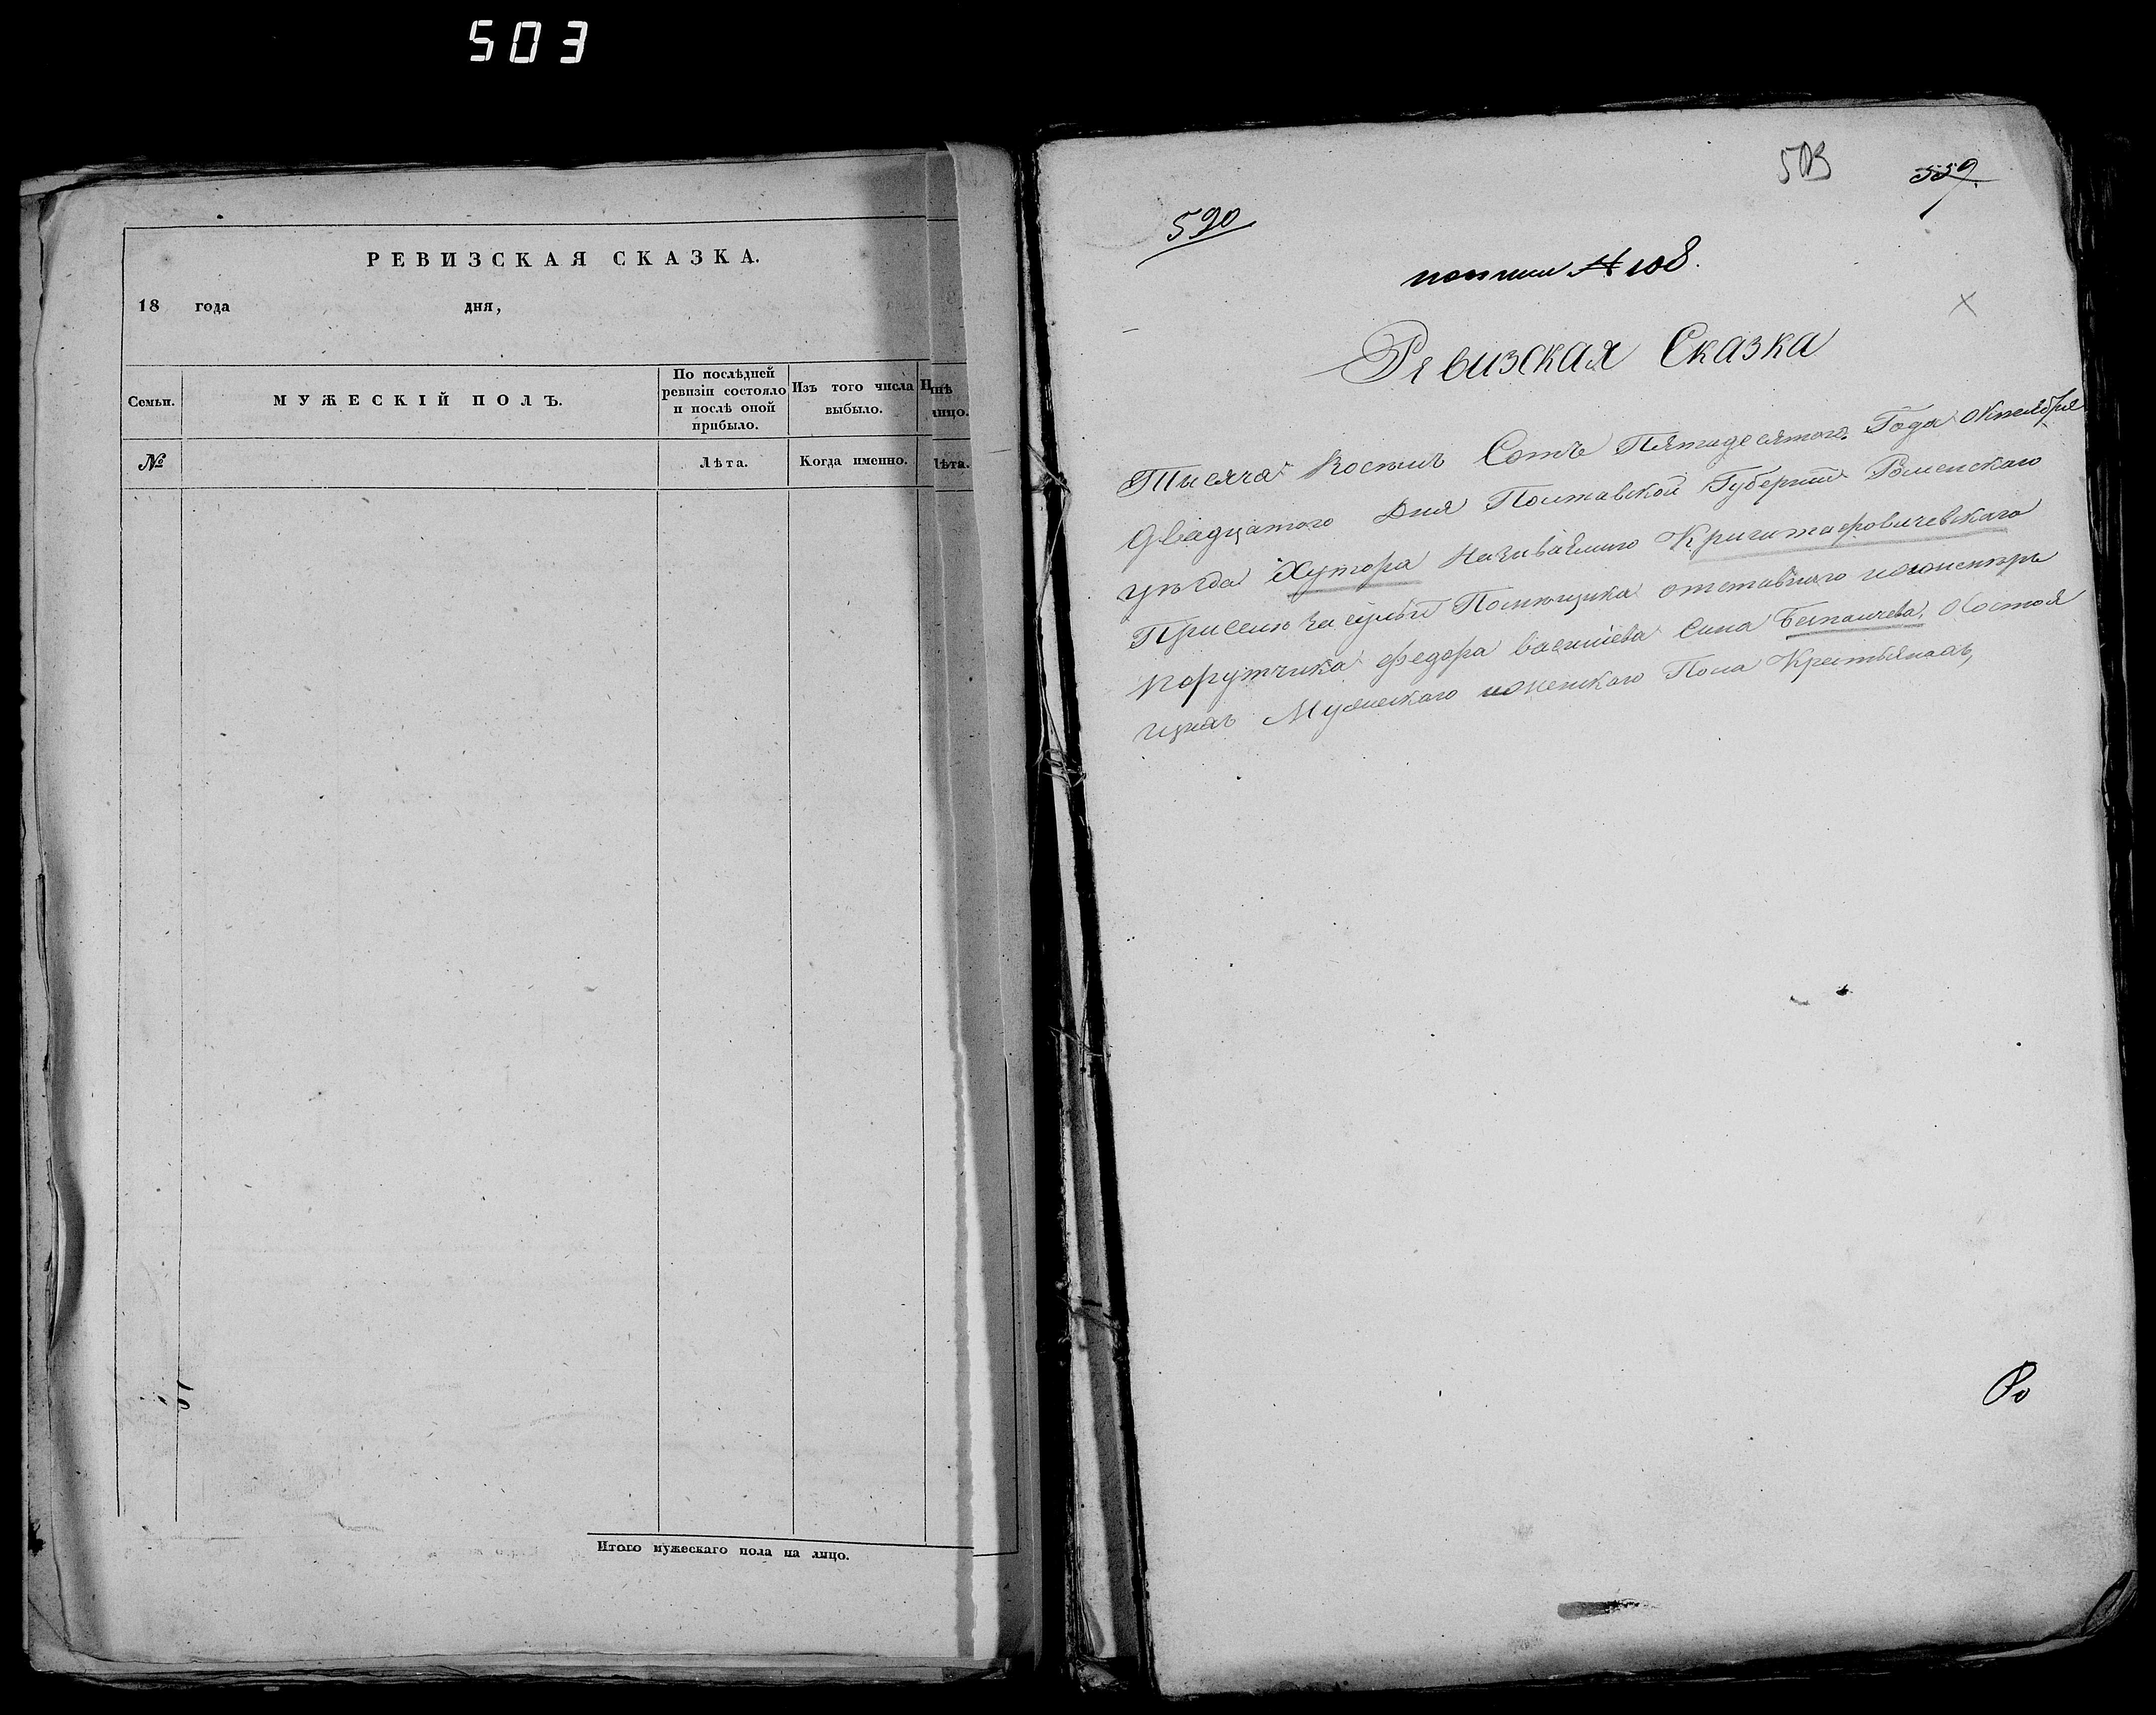 503
РЕВИЗСКАЯ СКАЗКА.
18 года дня,
Семьи.
МУЖЕСКІЙ ПОЛЪ.
По послѣдней
ревизіи состояло
и послѣ оной
прибыло.
Изъ того числа
выбыло.
№
Лѣта.
Когда именно.
Лѣта.
Итого мужескаго пола на лицо.
503
559.
590
№ 108.
Ревизская Сказка
Тисяча Восемъ Сотъ Пятидесятого Года Октября
Двадцатого Дня Полтавской Губерніи Роменскаго
уѣзда Хутора Називаемого Кришта­фовичевскаго
При Помѣщика отставного
порутчика федора василіева Сина Состоя
щихъ Мужескаго иженскаго Пола Крестьянахъ,
Ро